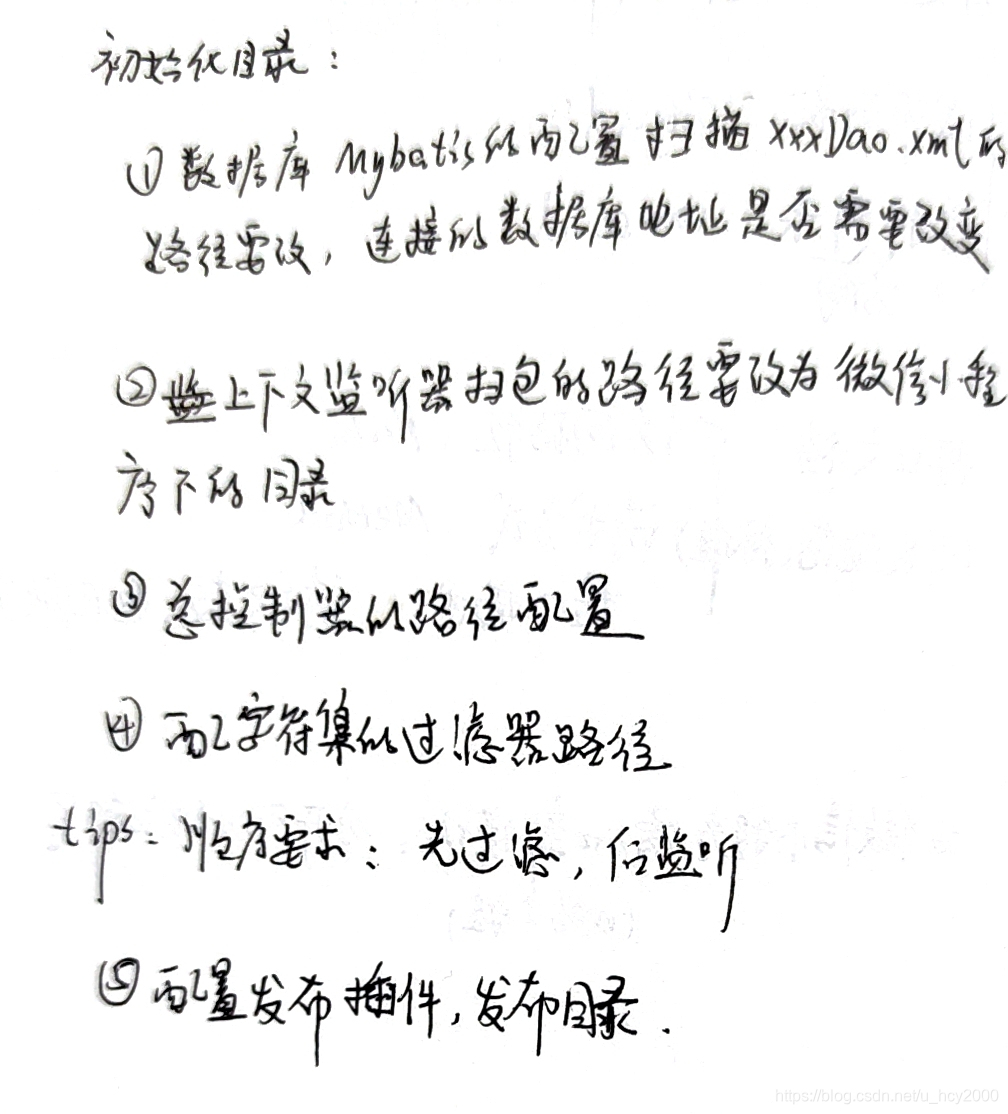 初始化目录：
① 数据库 Mybatis的配置 扫描 xxxDao.xml的
路径要改，连接的数据库地址是否需要改变
② 上下文监听器扫包的路径要改为微信小程
序下的目录
③ 总控制器的路径配置
④ 配字符集的过滤器路径
tips：顺序要求：先过滤，后监听
⑤ 配置发布插件，发布目录．
https://blog.csdn.net/u_hcy2000